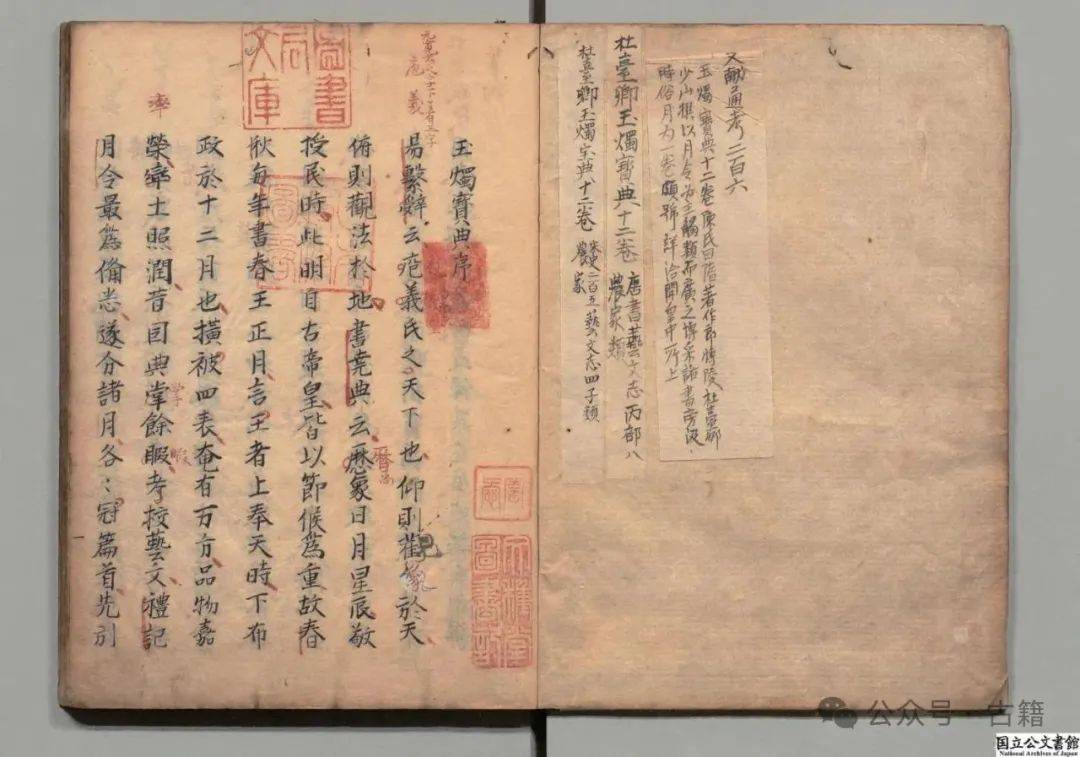 文獻通考二百六
玉燭寶典十二卷陳氏曰隋著作郎博陵杜臺卿
少山撰以月令為主觸類而廣之博采諸書旁及
時俗月為一卷頗號詳洽開皇中所上
杜臺卿玉燭寶典十二卷 唐書藝文志丙部八
農家類
杜臺卿玉燭宝典十二卷 宋史二百五藝文志四子類
農家
玉燭寶典序
易繫辭云疱義氏之天下也仰則觀象於天
俯則觀法於地書堯典云歷象日月星辰敬
授民時此明自古帝皇皆以節候為重故春
秋每年書春王正月言王者上奉天時下布
政於十二月也橫被四表奄有万方品物嘉
榮率土照潤昔因典掌餘暇考挍藝文禮記
月令最為備悉遂分諸月各〻冠篇首先引
庖義
率
曆
暇
圖書
局
文庫
公众号·古籍
国立公文書館
National Archives of Japan